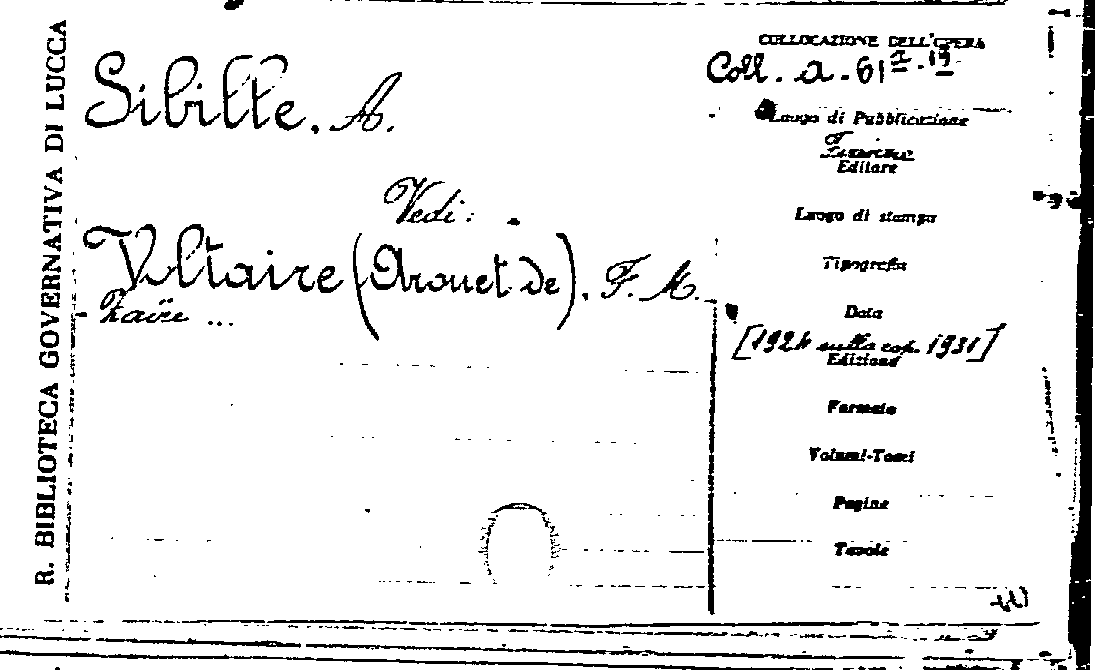 R. BIBLIOTECA GOVERNATIVA DI LUCCA
Sibille, A.
Vedi:
Voltaire (Arouet de), F. M.
Zaïre ...
COLLOCAZIONE DELL'OPERA
Coll. a. 61 I. 19
Luogo di Pubblicazione
Torino
Editore
Luogo di stampa
Tipografia
Data
[1924 sulla cop. 1931]
Edizione
Formato
Volumi-Tomi
Pagine
Tavole